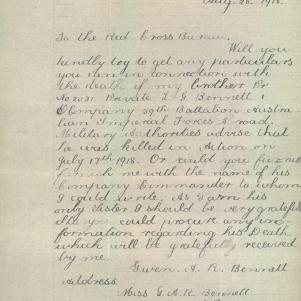 Aug. 28. 1918.
To the Red Cross Bureau.
Will you
kindly try to get any particulars
you can in connection with
the death of my brother Pr
No 2031. Private L G Bennett
Company 39th Battalion Austra-
lian Imperial Forces Abroad.
Military Authorities advise that
he was killed in Action on
July 17th 1918. Or could you
furnish me with the name of his
Company Commander to whom
I could write. As I am his
only Sister I should be very grateful
if you could procure any in-
formation regarding his Death
which will be gratefully received
by me
Gwen. A. R. Bennett
Address.
Miss G. A. R. Bennett